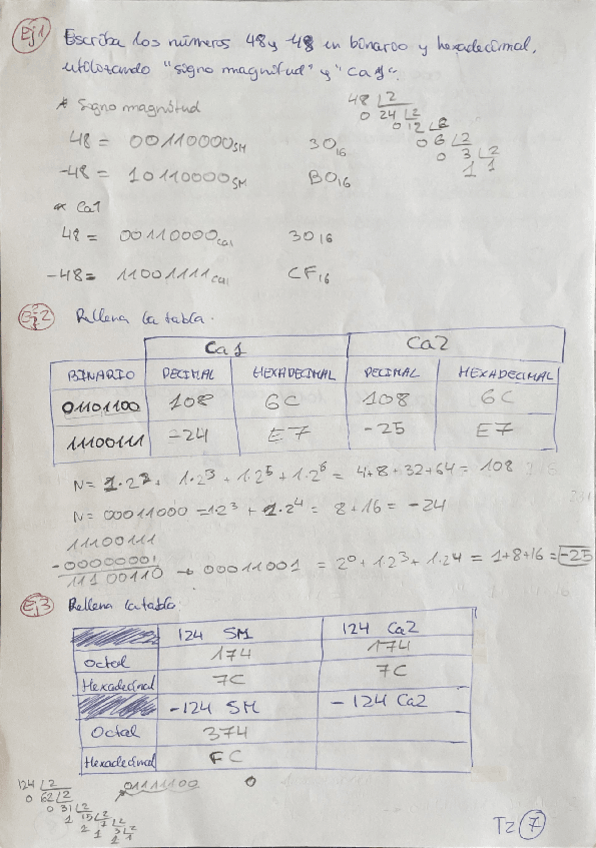 Ej1 Escriba los números 48 y -48 en binario y hexadecimal,
utilizando "signo magnitud" y "Ca1".
* Signo magnitud
48 = 00110000SM 30₁₆
-48 = 10110000SM B0₁₆
* Ca1
48 = 00110000Ca1 30₁₆
-48 = 11001111Ca1 CF₁₆
48 2
0 24 2
0 12 2
0 6 2
0 3 2
1 1
Ej.2 Rellena la tabla.
Ca1 Ca2
BINARIO DECIMAL HEXADECIMAL DECIMAL HEXADECIMAL
01101100 108 6C 108 6C
11100111 -24 E7 -25 E7
N = 1·2² + 1·2³ + 1·2⁵ + 1·2⁶ = 4+8+32+64 = 108
N = 00011000 = 1·2³ + 1·2⁴ = 8+16 = -24
11100111
-00000001
11100110 → 00011001 = 2⁰ + 1·2³ + 1·2⁴ = 1+8+16 = -25
Ej3 Rellena la tabla.
124 SM 124 Ca2
Octal 174 174
Hexadecimal 7C 7C
-124 SM -124 Ca2
Octal 374
Hexadecimal FC
124 2
0 62 2
0 31 2
1 15 2
1 7 2
1 3 2
1 1
01111100
0
Tz 7